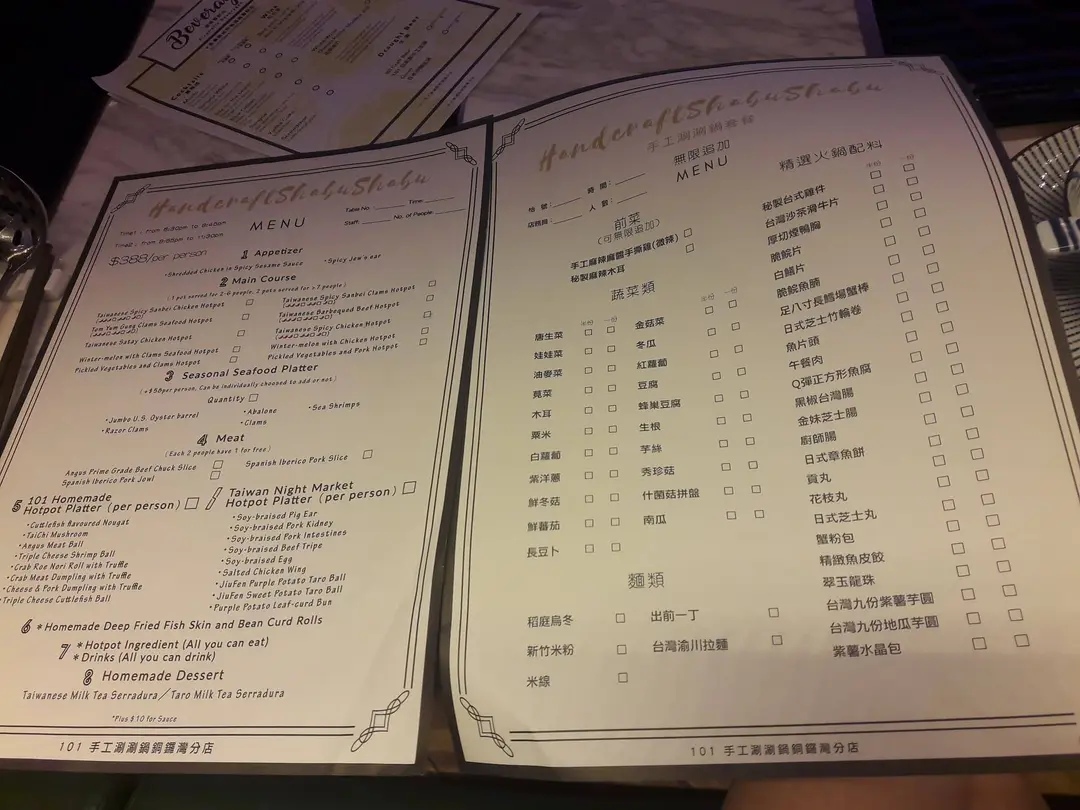 Beverag
Cocktails
Draught Beer
HandcraftShabuShabu
MENU
Time1 : from 6:30pm to 8:45pm
Time2 : from 8:55pm to 11:30pm
Table No.: Time:
Staff: No. of People:
$388/per person
1 Appetizer
•Shredded Chicken in Spicy Sesame Sauce •Spicy Jew's ear
2 Main Course
(1 pot served for 2-6 people, 2 pots served for >7 people)
Taiwanese Spicy Sanbei Chicken Hotpot □ Taiwanese Spicy Sanbei Clams Hotpot □
Tom Yum Gung Clams Seafood Hotpot □ Taiwanese Barbequed Beef Hotpot □
Taiwanese Satay Chicken Hotpot □ Taiwanese Spicy Chicken Hotpot □
Winter-melon with Clams Seafood Hotpot □ Winter-melon with Chicken Hotpot □
Pickled Vegetables and Clams Hotpot □ Pickled Vegetables and Pork Hotpot □
3 Seasonal Seafood Platter
(+$58per person, Can be individually choosed to add or not)
Quantity □
•Jumbo U.S. Oyster barrel •Abalone •Sea Shrimps
•Razor Clams •Clams
4 Meat
(Each 2 people have 1 for free)
Angus Prime Grade Beef Chuck Slice □ Spanish Iberico Pork Slice □
Spanish Iberico Pork Jowl □
5 101 Homemade
Hotpot Platter (per person) □
•Cuttlefish flavoured Nougat
•TaiChi Mushroom
•Angus Meat Ball
•Triple Cheese Shrimp Ball
•Crab Roe Nori Roll with Truffle
•Crab Meat Dumpling with Truffle
•Cheese & Pork Dumpling with Truffle
•Triple Cheese Cuttlefish Ball
/ Taiwan Night Market
Hotpot Platter (per person) □
•Soy-braised Pig Ear
•Soy-braised Pork Kidney
•Soy-braised Pork Intestines
•Soy-braised Beef Tripe
•Soy-braised Egg
•Salted Chicken Wing
•JiuFen Purple Potato Taro Ball
•JiuFen Sweet Potato Taro Ball
•Purple Potato Leaf-curd Bun
6 *Homemade Deep Fried Fish Skin and Bean Curd Rolls
7 *Hotpot Ingredient (All you can eat)
*Drinks (All you can drink)
8 Homemade Dessert
Taiwanese Milk Tea Serradura／Taro Milk Tea Serradura
*Plus $10 for Sauce
101 手工涮涮鍋銅鑼灣分店
HandcraftShabuShabu
手工涮涮鍋套餐
無限追加
MENU
檯號： 時間：
店務員： 人數：
前菜
（可無限追加）
手工麻辣麻醬手撕雞(微辣) □
秘製麻辣木耳 □
蔬菜類
半份 一份
唐生菜 □ □
娃娃菜 □ □
油麥菜 □ □
莧菜 □ □
木耳 □ □
粟米 □ □
白蘿蔔 □ □
紫洋蔥 □ □
鮮冬菇 □ □
鮮蕃茄 □ □
長豆卜 □ □
半份 一份
金菇菜 □ □
冬瓜 □ □
紅蘿蔔 □ □
豆腐 □ □
蜂巢豆腐 □ □
生根 □ □
芋絲 □ □
秀珍菇 □ □
什菌菇拼盤 □ □
南瓜 □ □
麵類
稻庭烏冬 □ 出前一丁 □
新竹米粉 □ 台灣渝川拉麵 □
米線 □
精選火鍋配料
半份 一份
秘製台式雞件
台灣沙茶滑牛片
厚切煙鴨胸
脆鯇片
白鱔片
脆鯇魚腩
足八寸長鱈場蟹棒
日式芝士竹輪卷
魚片頭
午餐肉
Q彈正方形魚腐
黑椒台灣腸
金妹芝士腸
廚師腸
日式章魚餅
貢丸
花枝丸
日式芝士丸
蟹粉包
精緻魚皮餃
翠玉龍珠
台灣九份紫薯芋圓
台灣九份地瓜芋圓
紫薯水晶包
101 手工涮涮鍋銅鑼灣分店